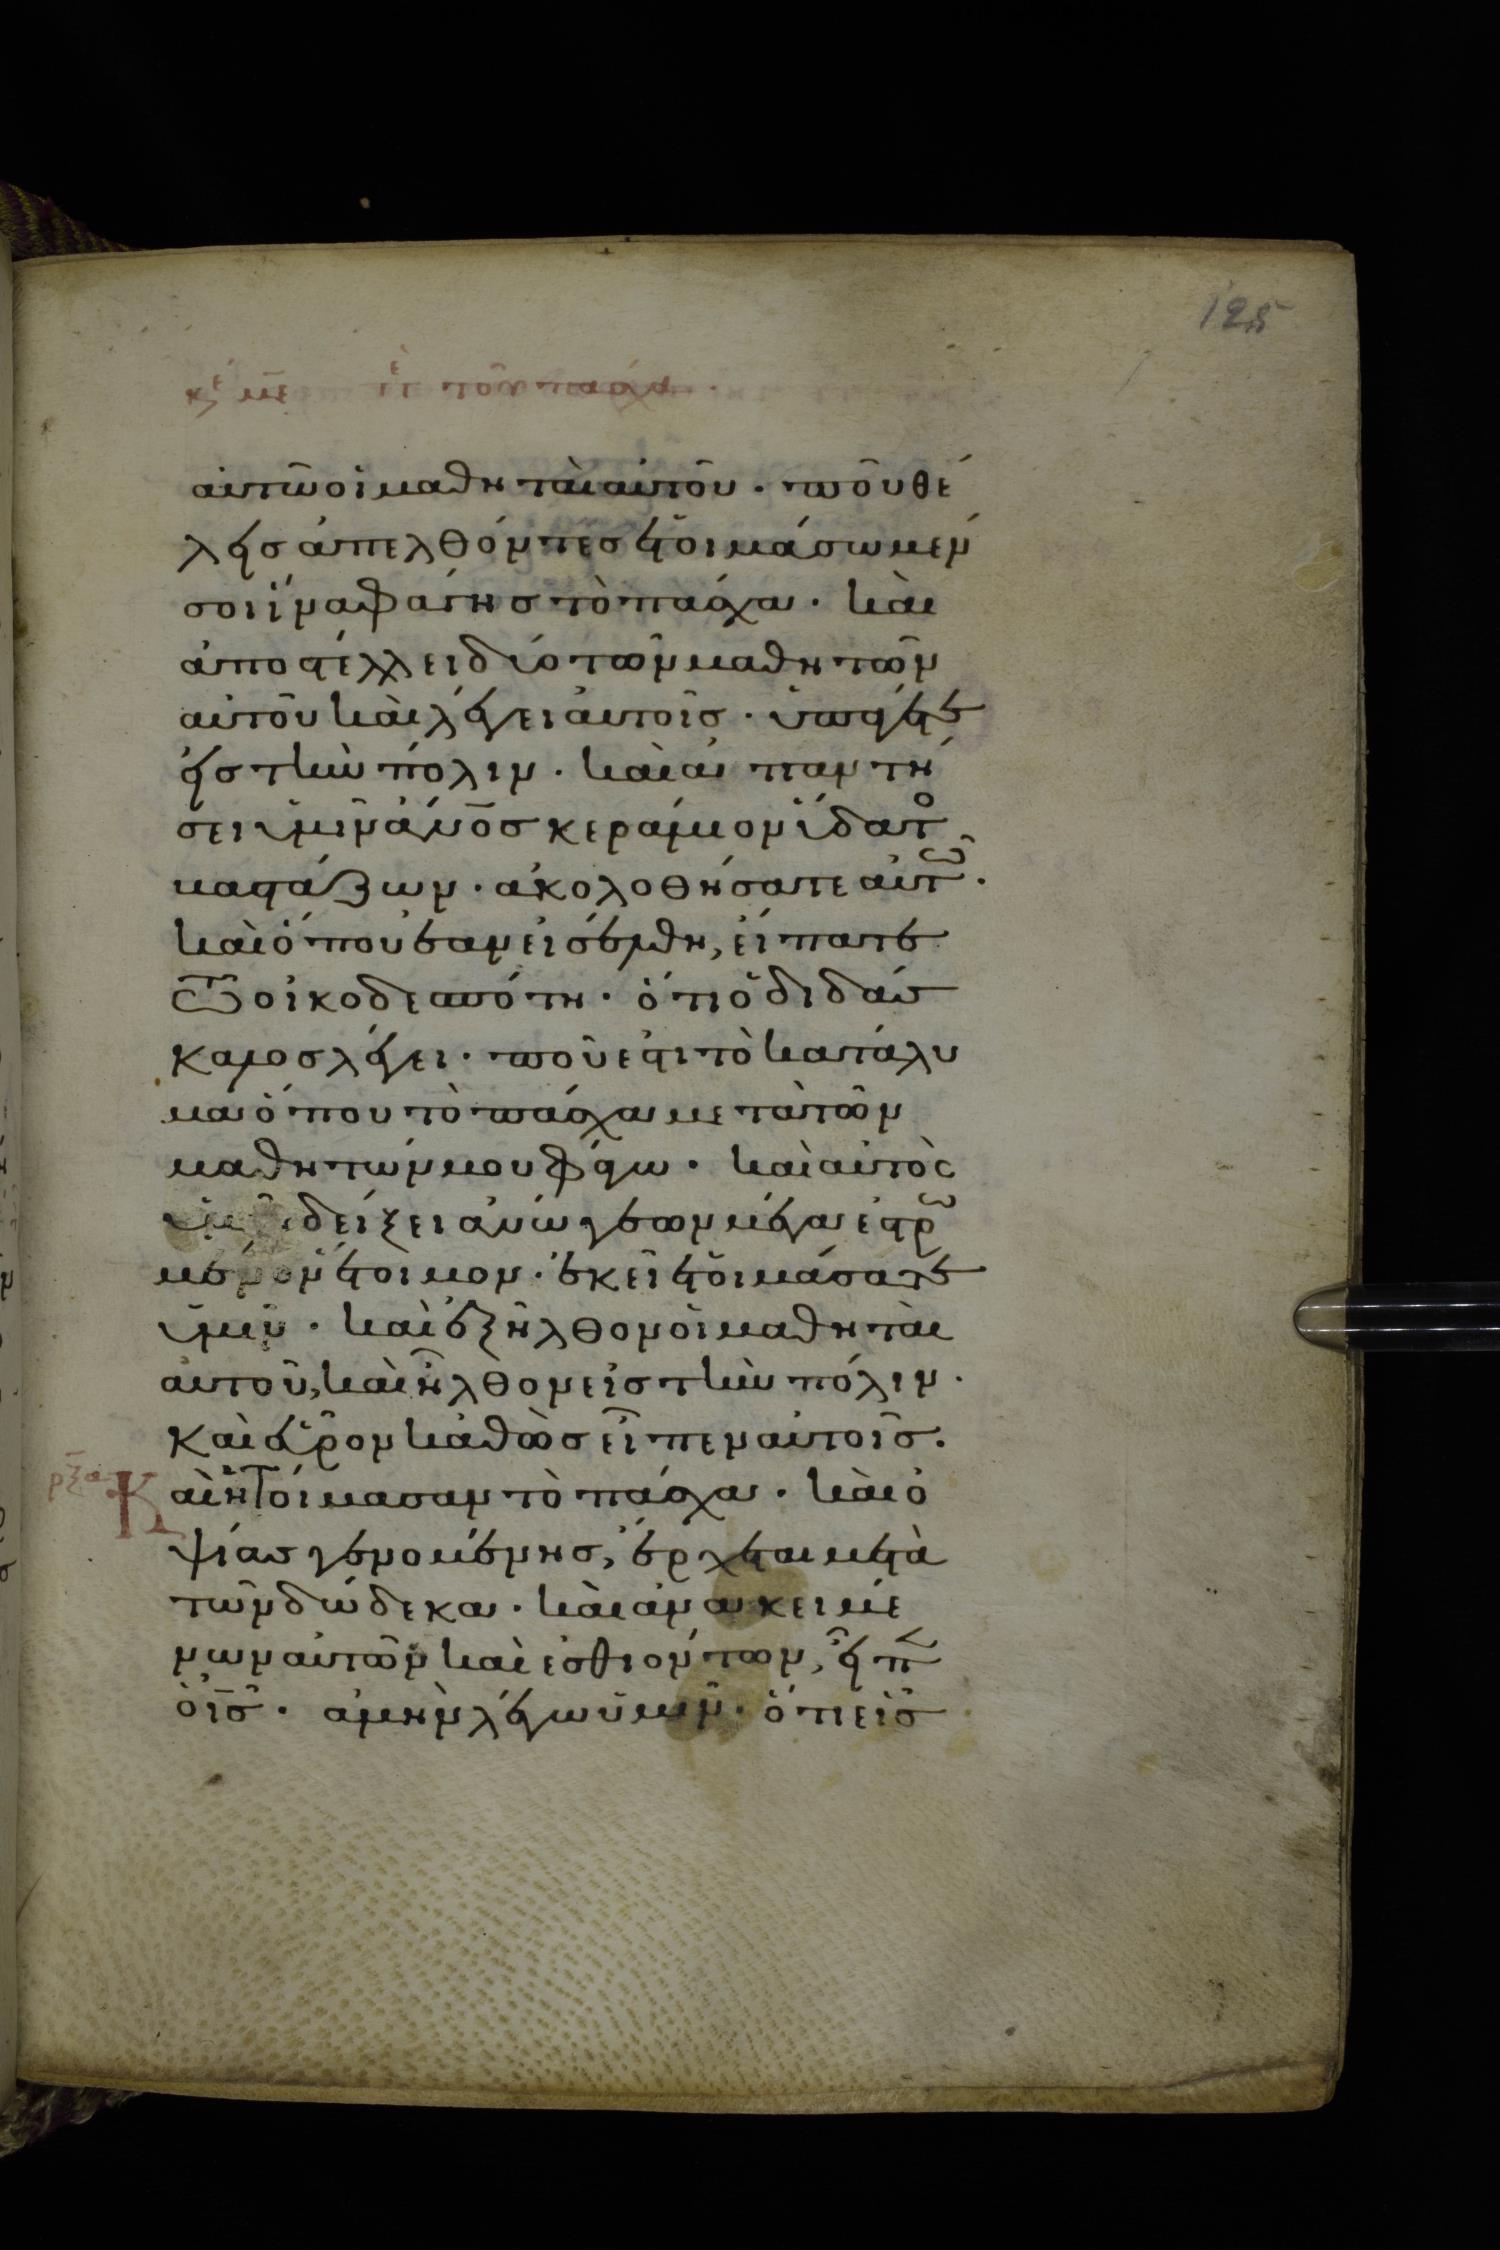 125
κε με περὶ τοῦ πάσχα ·
αὐτῶ οἱ μαθηταὶ αὐτοῦ · ποῦ θέ
λεις ἀπελθόντες ἑτοιμάσωμεν
σοι ἵνα φάγης τὸ πάσχα · καὶ
ἀποστέλλει δύο τῶν μαθητῶν
αὐτοῦ καὶ λέγει αὐτοῖς · ὑπάγετε
εἰς τὴν πόλιν · καὶ ἀπαντή
σει ὑμῖν ἄνος κεράμιον ὕδατο
βαστάζων · ἀκολοθήσατε αὐτῶ ·
καὶ ὅπου ἐὰν εἰσέλθη, εἴπατε
τῶ οἰκοδεσπότη · ὅτι ὁ διδάσ
καλος λέγει · ποῦ ἐστι τὸ κατάλυ
μα ὅπου τὸ πάσχα μετὰ τῶν
μαθητῶν μου φάγω · καὶ αὐτὸς
ὑμῖν δείξει ἀνώγεων μέγα ἐστρω
μένον ἕτοιμον · ἐκεῖ ἑτοιμάσατε
ὑμῖν · καὶ ἐξῆλθον οἱ μαθηταὶ
αὐτοῦ, καὶ ἦλθον εἰς τὴν πόλιν ·
καὶ εὗρον καθὼς εἶπεν αὐτοῖς ·
ρξα Καὶ ἡτοίμασαν τὸ πάσχα · καὶ ὀ
ψίας γενομένης, ἔρχεται μετὰ
τῶν δώδεκα · καὶ ἀνακειμέ
νων αὐτῶν καὶ ἐσθιόντων, εἶπεν
ὁ ις · ἀμὴν λέγω ὑμῖν · ὅτι εἷς